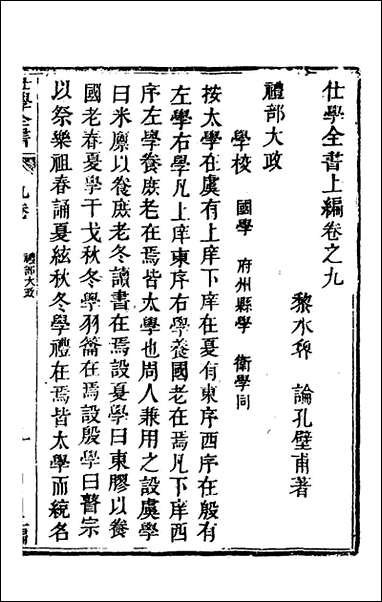 仕學全書上編卷之九
黎水魯論孔壁甫著
禮部大政
學校 國學 府州縣學 衛學同
按太學在虞有上庠下庠在夏有東序西序在殷有
左學右學凡上庠東序右學養國老在焉凡下庠西
序左學養庶老在焉皆太學也周人兼用之設虞學
曰米廩以養庶老冬讀書在焉設夏學曰東膠以養
國老春夏學干戈秋冬學羽籥在焉設殷學曰瞽宗
以祭樂祖春誦夏絃秋冬學禮在焉皆太學而統名
仕學全書
九卷
禮部大政
一